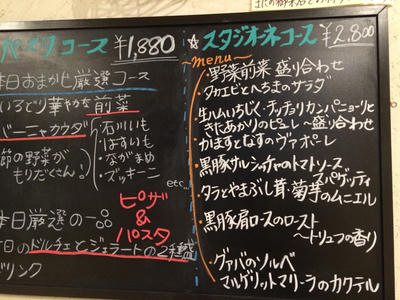 パスタコース ¥1,880
本日おまかせ厳選コース
いろどり華やかな 前菜
バーニャカウダ
節の野菜が
もりだくさん!
・石川いも
・はすいも
・ながまめ
・ズッキーニ
etc...
本日厳選の一品
ピザ
&
パスタ
日のドルチェとジェラートの2種盛
ドリンク
☆スタジオーネコース ¥2,800
~menu~
・野菜前菜 盛り合わせ
・タカエビとへちまのサラダ
・生ハムいちじく・チッチョリカンパニョーリと
きたあかりのピュレ ~盛り合わせ
・かますとなすのヴァポーレ
・黒豚サルシッチャのトマトソース
スパゲッティ
・タラとやまぶし茸・菊芋のムニエル
・黒豚肩ロースのロースト
~トリュフの香り
・グァバのソルベ
マルゲリットマリーラのカクテル